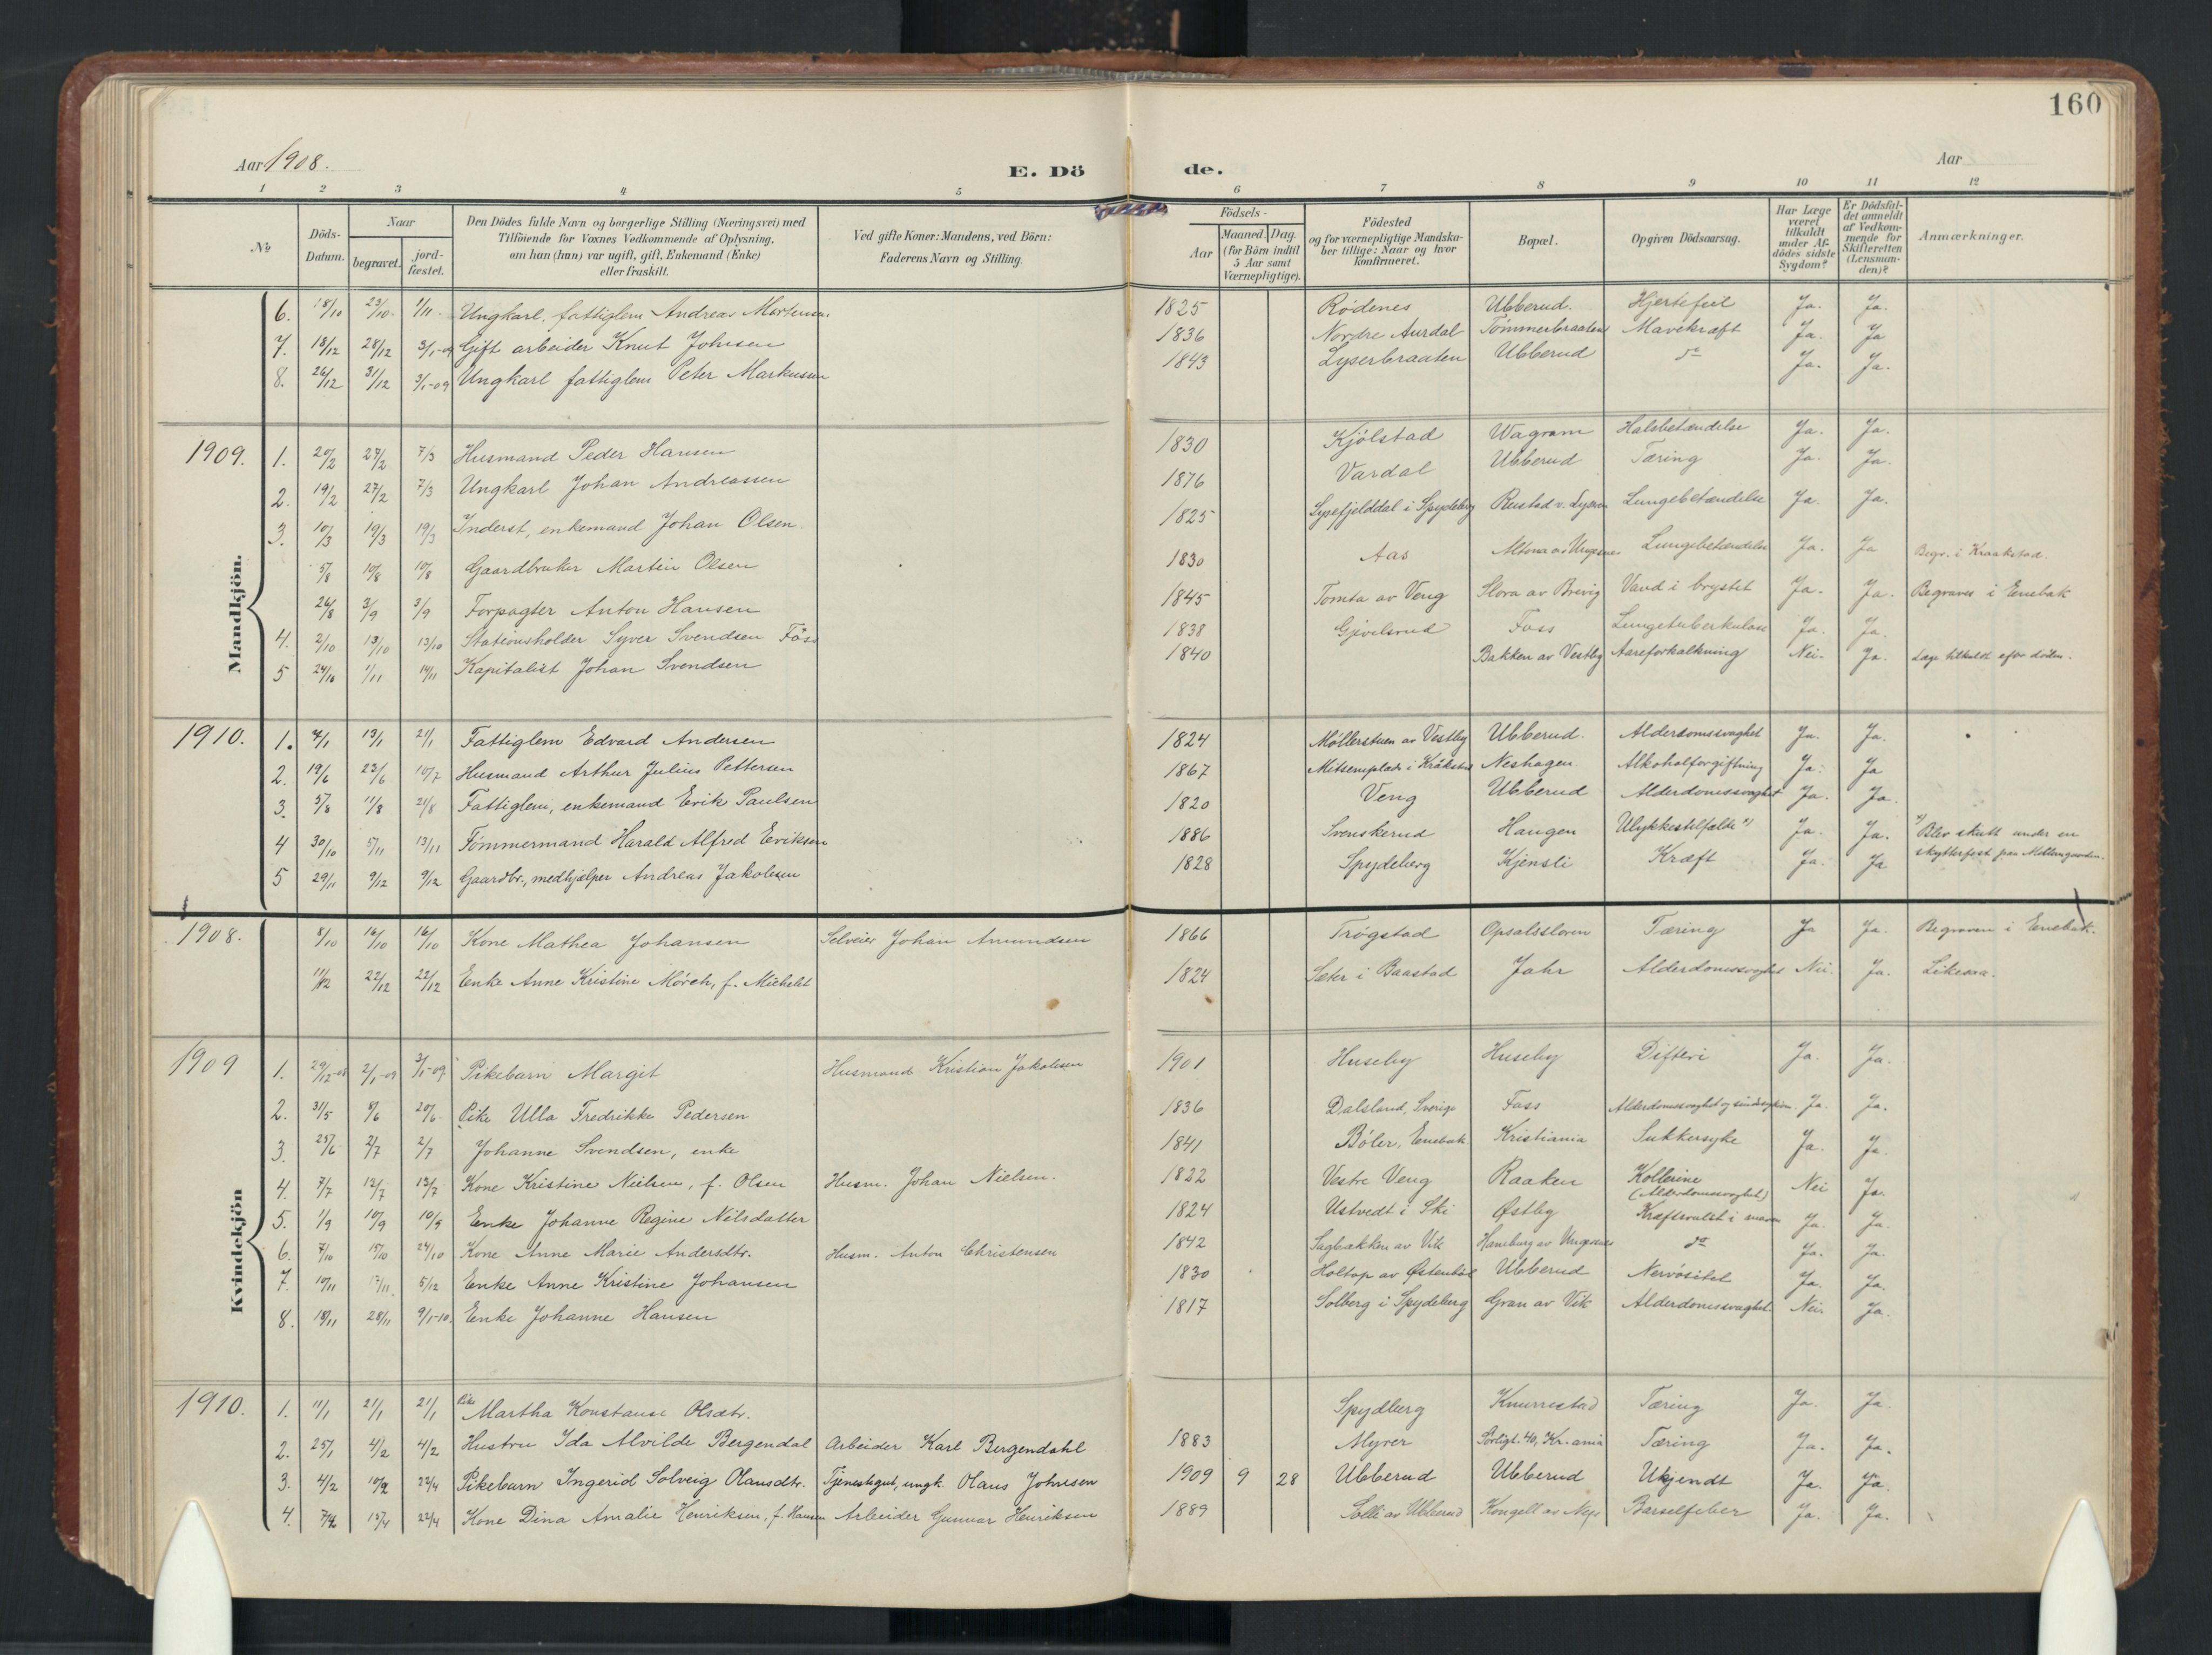 160
Aar 1908.
E. Dö de.
Aar
1 2 3 4 5 6 7 8 9 10 11 12
No
Döds-Datum.
Naar
begravet.
jord-fæstet.
Den Dödes fulde Navn og borgerlige Stilling (Næringsvei) med
Tilföiende for Voxnes Vedkommende af Oplysning,
om han (hun) var ugift, gift, Enkemand (Enke)
eller fraskilt.
Ved gifte Koner: Mandens, ved Börn:
Faderens Navn og Stilling.
Födsels-
Aar
Maaned. Dag.
(for Börn indtil
5 Aar samt
Værnepligtige).
Födested
og for værnepligtige Mandska-
ber tillige: Naar og hvor
konfirmeret.
Bopæl.
Opgiven Dödsaarsag.
Har Læge
været
tilkaldt
under Af-
dödes sidste
Sygdom?
Er Dödsfal-
det anmeldt
af Vedkom-
mende for
Skifteretten
(Lensman-
den)?
Anmærkninger.
Mandkjön.
6. 18/10 23/10 1/11 Ungkarl, fattiglem Andreas Martensen 1825 Rødenes Ubberud. Hjertefeil Ja. Ja.
7. 13/12 28/12 3/1-09 Gift arbeider Knut Johnsen 1836 Nordre Aurdal Tømmerbraaten Mavekræft Ja. Ja
8. 26/12 31/12 3/1-09 Ungkarl fattiglem Peter Markussen 1843 Lyserbraaten Ubberud do Ja. Ja.
1909. 1. 20/2 27/2 7/3 Husmand Peder Hansen 1830 Kjølstad Wagram Halsbetændelse Ja. Ja.
2. 19/2 27/2 7/3 Ungkarl Johan Andreassen 1876 Vardal Ubberud Tæring Ja. Ja.
3. 10/3 19/3 19/3 Inderst, enkemand Johan Olsen. 1825 Lysefjelddal i Spydeberg Rustad v. Lyseren Lungebetændelse Ja. Ja.
5/8 10/8 10/8 Gaardbruker Martin Olsen 1830 Aas Altona av Ungesnes Lungebetændelse Ja. Ja Begr. i Kraakstad.
26/8 3/9 3/9 Forpagter Anton Hansen 1845 Tomta av Veng Slora av Brevig Vand i brystet Ja. Ja. Begraves i Enebak
4. 2/10 13/10 13/10 Stationsholder Syver Svendsen Foss 1838 Gjevelsrud Foss Lungetuberkulose Ja. Ja.
5 24/10 1/11 14/11 Kapitalist Johan Svendsen 1840 Bakken av Vestby Aareforkalkning Nei. Ja. Læge tilkaldt efter døden.
1910. 1. 4/1 13/1 21/1 Fattiglem Edvard Andersen 1824 Møllerstuen av Vestby Ubberud. Alderdomssvaghet Ja. Ja.
2. 19/6 23/6 10/7 Husmand Arthur Julius Pettersen 1867 Mitsemplads i Kråkstad Neshagen. Alkoholforgiftning Ja. Ja
3. 5/8 11/8 21/8 Fattiglem, enkemand Erik Paulsen 1820 Veng Ubberud Alderdomssvaghet Ja. Ja.
4 30/10 5/11 13/11 Tømmermand Harald Alfred Eriksen 1886 Svenskerud Haugen Ulykkestilfælde *) Ja. Ja. *) Blev skutt under en
skytterfest paa
5 29/11 9/12 9/12 Gaardbr., medhjælper Andreas Jakobsen 1828 Spydeberg Kjensli Kræft Ja. Ja
Kvindekjön
1908. 8/10 16/10 16/10 Kone Mathea Johansen Selveier Johan Amundsen 1866 Trøgstad Opsalssloren Tæring Ja Ja. Begraven i Enebak.
11/12 22/12 22/12 Enke Anne Kristine Mørch, f. Michelet 1824 Sæter i Baastad Jahr Alderdomssvaghet Nei. Ja. Likesaa.
1909 1. 29/12-08 2/1-09 3/1-09. Pikebarn Margit Husmand Kristian Jakobsen 1901 Huseby Huseby Difteri Ja. Ja.
2. 31/5 8/6 20/6 Pike Ulla Fredrikke Pedersen 1836 Dalsland, Sverige Foss Alderdomssvaghet og sindssykdom. Ja. Ja.
3. 25/6 2/7 2/7 Johanne Svendsen, enke 1841 Bøler, Enebak Kristiania Sukkersyke Ja. Ja.
4. 7/7 12/7 13/7 Kone Kristine Nielsen, f. Olsen Husm. Johan Nielsen. 1822 Vestre Veng Raaken Kollerine
(Alderdomssvaghet) Nei Ja.
5. 1/9 10/9 10/9 Enke Johanne Regine Nilsdatter 1824 Ustvedt i Ski Østby Kræftsvulst i maven Ja. Ja.
6. 7/10 15/10 24/10 Kone Anne Marie Andersdtr. Husm. Anton Christensen 1842 Sagbakken av Vik Hamburg av Ungesnes do Ja. Ja.
7. 10/11 17/11 5/12 Enke Anne Kristine Johansen 1830 Holtop av Østenbøl Ubberud Nervøsitet Ja. Ja.
8. 18/11 28/11 9/1-10. Enke Johanne Hansen 1817 Solberg i Spydeberg Gran av Vik Alderdomssvaghet. Nei. Ja.
1910. 1. 11/1 21/1 21/1 Pike Martha Konstanse Olsdtr. Spydberg Knurrestad Tæring Ja. Ja.
2. 25/1 4/2 4/2 Hustru Ida Alvilde Bergendal Arbeider Karl Bergendahl 1883 Myrer 40, Kr.ania Tæring Ja. Ja.
3. 4/2 10/2 22/4 Pikebarn Ingerid Solveig Olausdtr. Tjenestegut, ungk. Olaus Johnsen 1909 9 28 Ubberud Ubberud Ukjendt Ja. Ja.
4. 15/4 22/4 Kone Dina Amalie Henriksen, f. Hansen Arbeider Gunnar Henriksen 1889 av Ubberud Kongell av Barselfeber Ja. Ja.